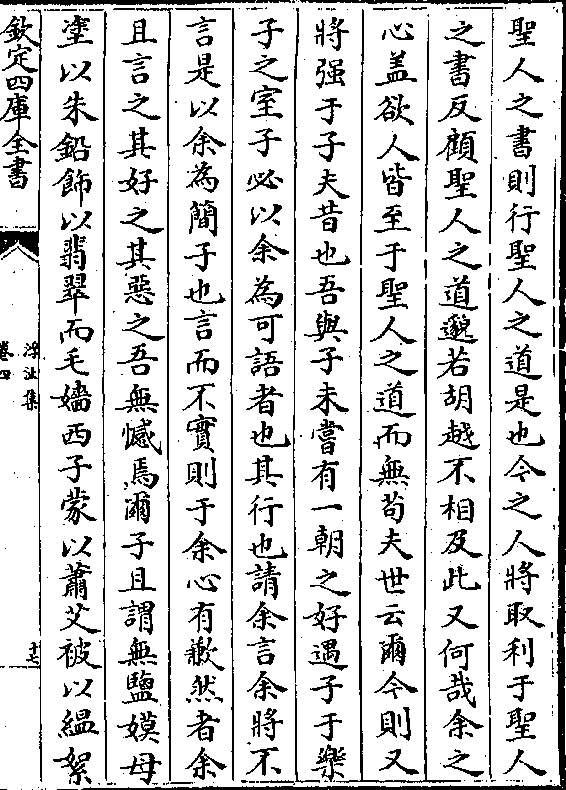 聖人之書則行聖人之道是也今之人將取利于聖人
之書反顧聖人之道邈若胡越不相及此又何哉余之
心盖欲人皆至于聖人之道而無苟夫世云爾今則又
將强于子夫昔也吾與子未嘗有一朝之好遇子于樂
子之室子必以余為可語者也其行也請余言余將不
言是以余為簡子也言而不實則于余心有歉然者余
且言之其好之其惡之吾無憾焉爾子且謂無鹽嫫母
塗以朱鉛飾以翡翠而毛嬙西子蒙以蕭艾被以緼絮
欽定四庫全書
浮沚集
卷四
十七